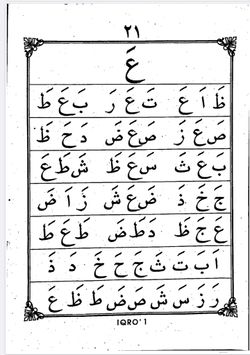 ٢١
عَ
ظَ اَ عَ تَ عَ رَ بَ عَ طَ
صَ عَ زَ صَ عَ ضَ دَ حَ ظَ
بَ عَ ثَ سَ عَ ظَ شَ طَ عَ
جَ خَ ذَ ضَ عَ شَ زَ اَ ضَ
عَ جَ ظَ دَ طَ ضَ طَ عَ ظَ
اَ بَ تَ ثَ جَ حَ خَ دَ ذَ
رَ زَ سَ شَ صَ ضَ طَ ظَ عَ
IQRO' 1